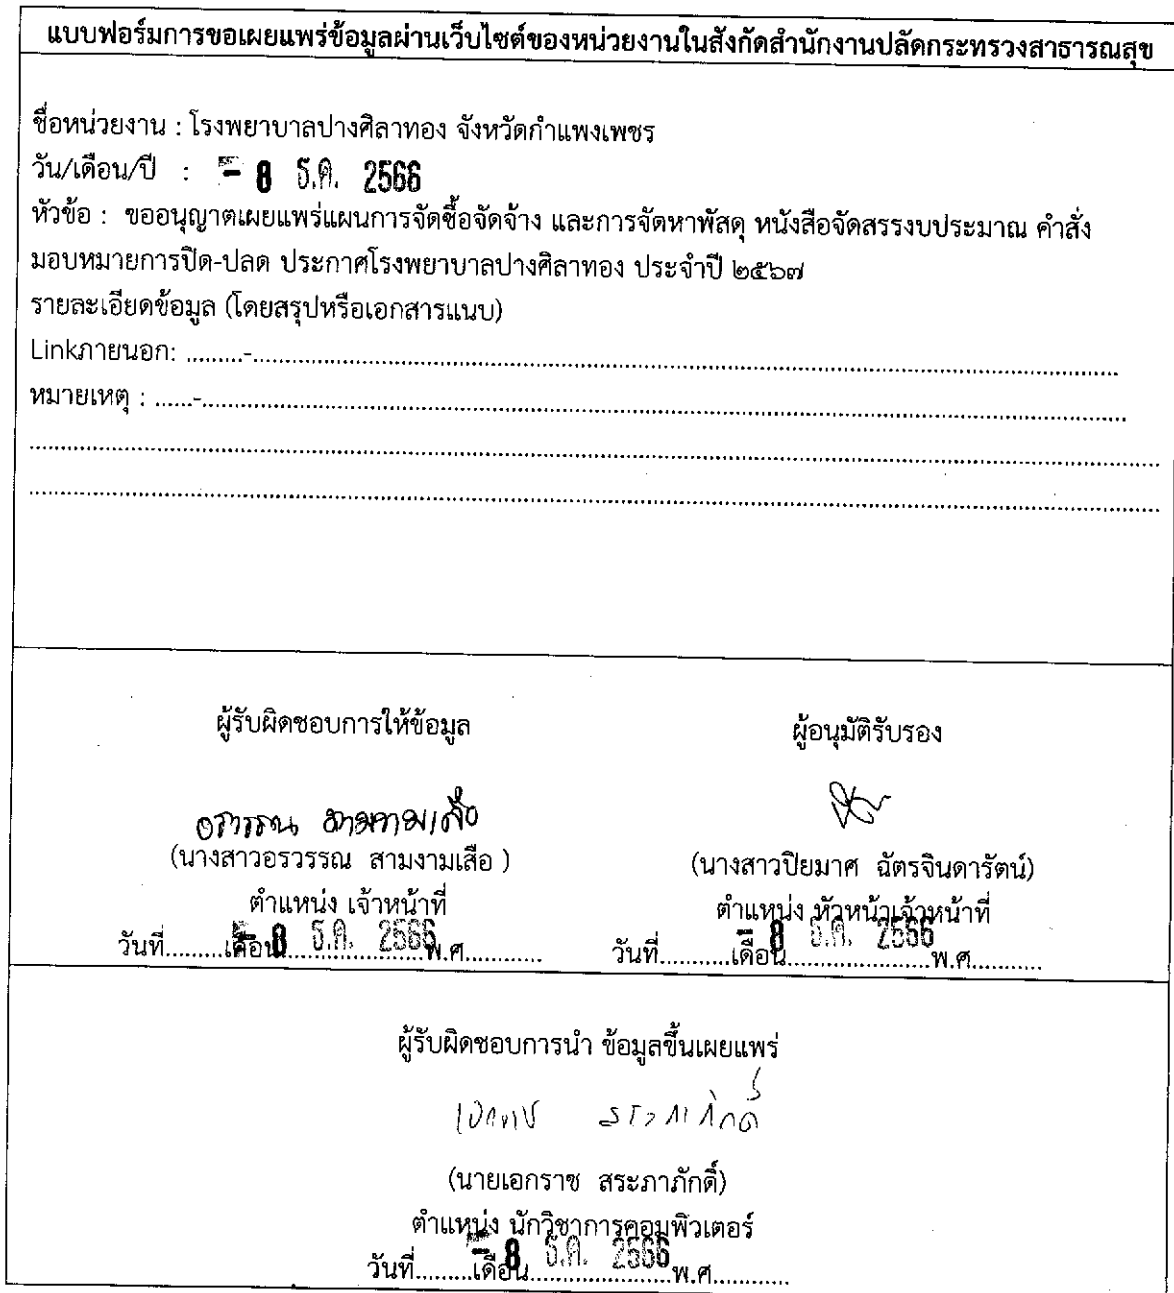 แบบฟอร์มการขอเผยแพร่ข้อมูลผ่านเว็บไซต์ของหน่วยงานในสังกัดสำนักงานปลัดกระทรวงสาธารณสุข
ชื่อหน่วยงาน : โรงพยาบาลปางศิลาทอง จังหวัดกำแพงเพชร
วัน/เดือน/ปี : - 8 ธ.ค. 2566
หัวข้อ : ขออนุญาตเผยแพร่แผนการจัดซื้อจัดจ้าง และการจัดหาพัสดุ หนังสือจัดสรรงบประมาณ คำสั่ง
มอบหมายการปิด-ปลด ประกาศโรงพยาบาลปางศิลาทอง ประจำปี ๒๕๖๗
รายละเอียดข้อมูล (โดยสรุปหรือเอกสารแนบ)
Linkภายนอก: .........-.........
หมายเหตุ : ......-.........
ผู้รับผิดชอบการให้ข้อมูล
อรวรรณ สามงามเสือ
(นางสาวอรวรรณ สามงามเสือ )
ตำแหน่ง เจ้าหน้าที่
วันที่.........เดือน - 8 ธ.ค. 2566 พ.ศ............
ผู้อนุมัติรับรอง
(นางสาวปิยมาศ ฉัตรจินดารัตน์)
ตำแหน่ง หัวหน้าเจ้าหน้าที่
วันที่...........เดือน - 8 ธ.ค. 2566 พ.ศ...........
ผู้รับผิดชอบการนำ ข้อมูลขึ้นเผยแพร่
เอกราช สระภาภักดิ์
(นายเอกราช สระภาภักดิ์)
ตำแหน่ง นักวิชาการคอมพิวเตอร์
วันที่.........เดือน - 8 ธ.ค. 2566 พ.ศ............